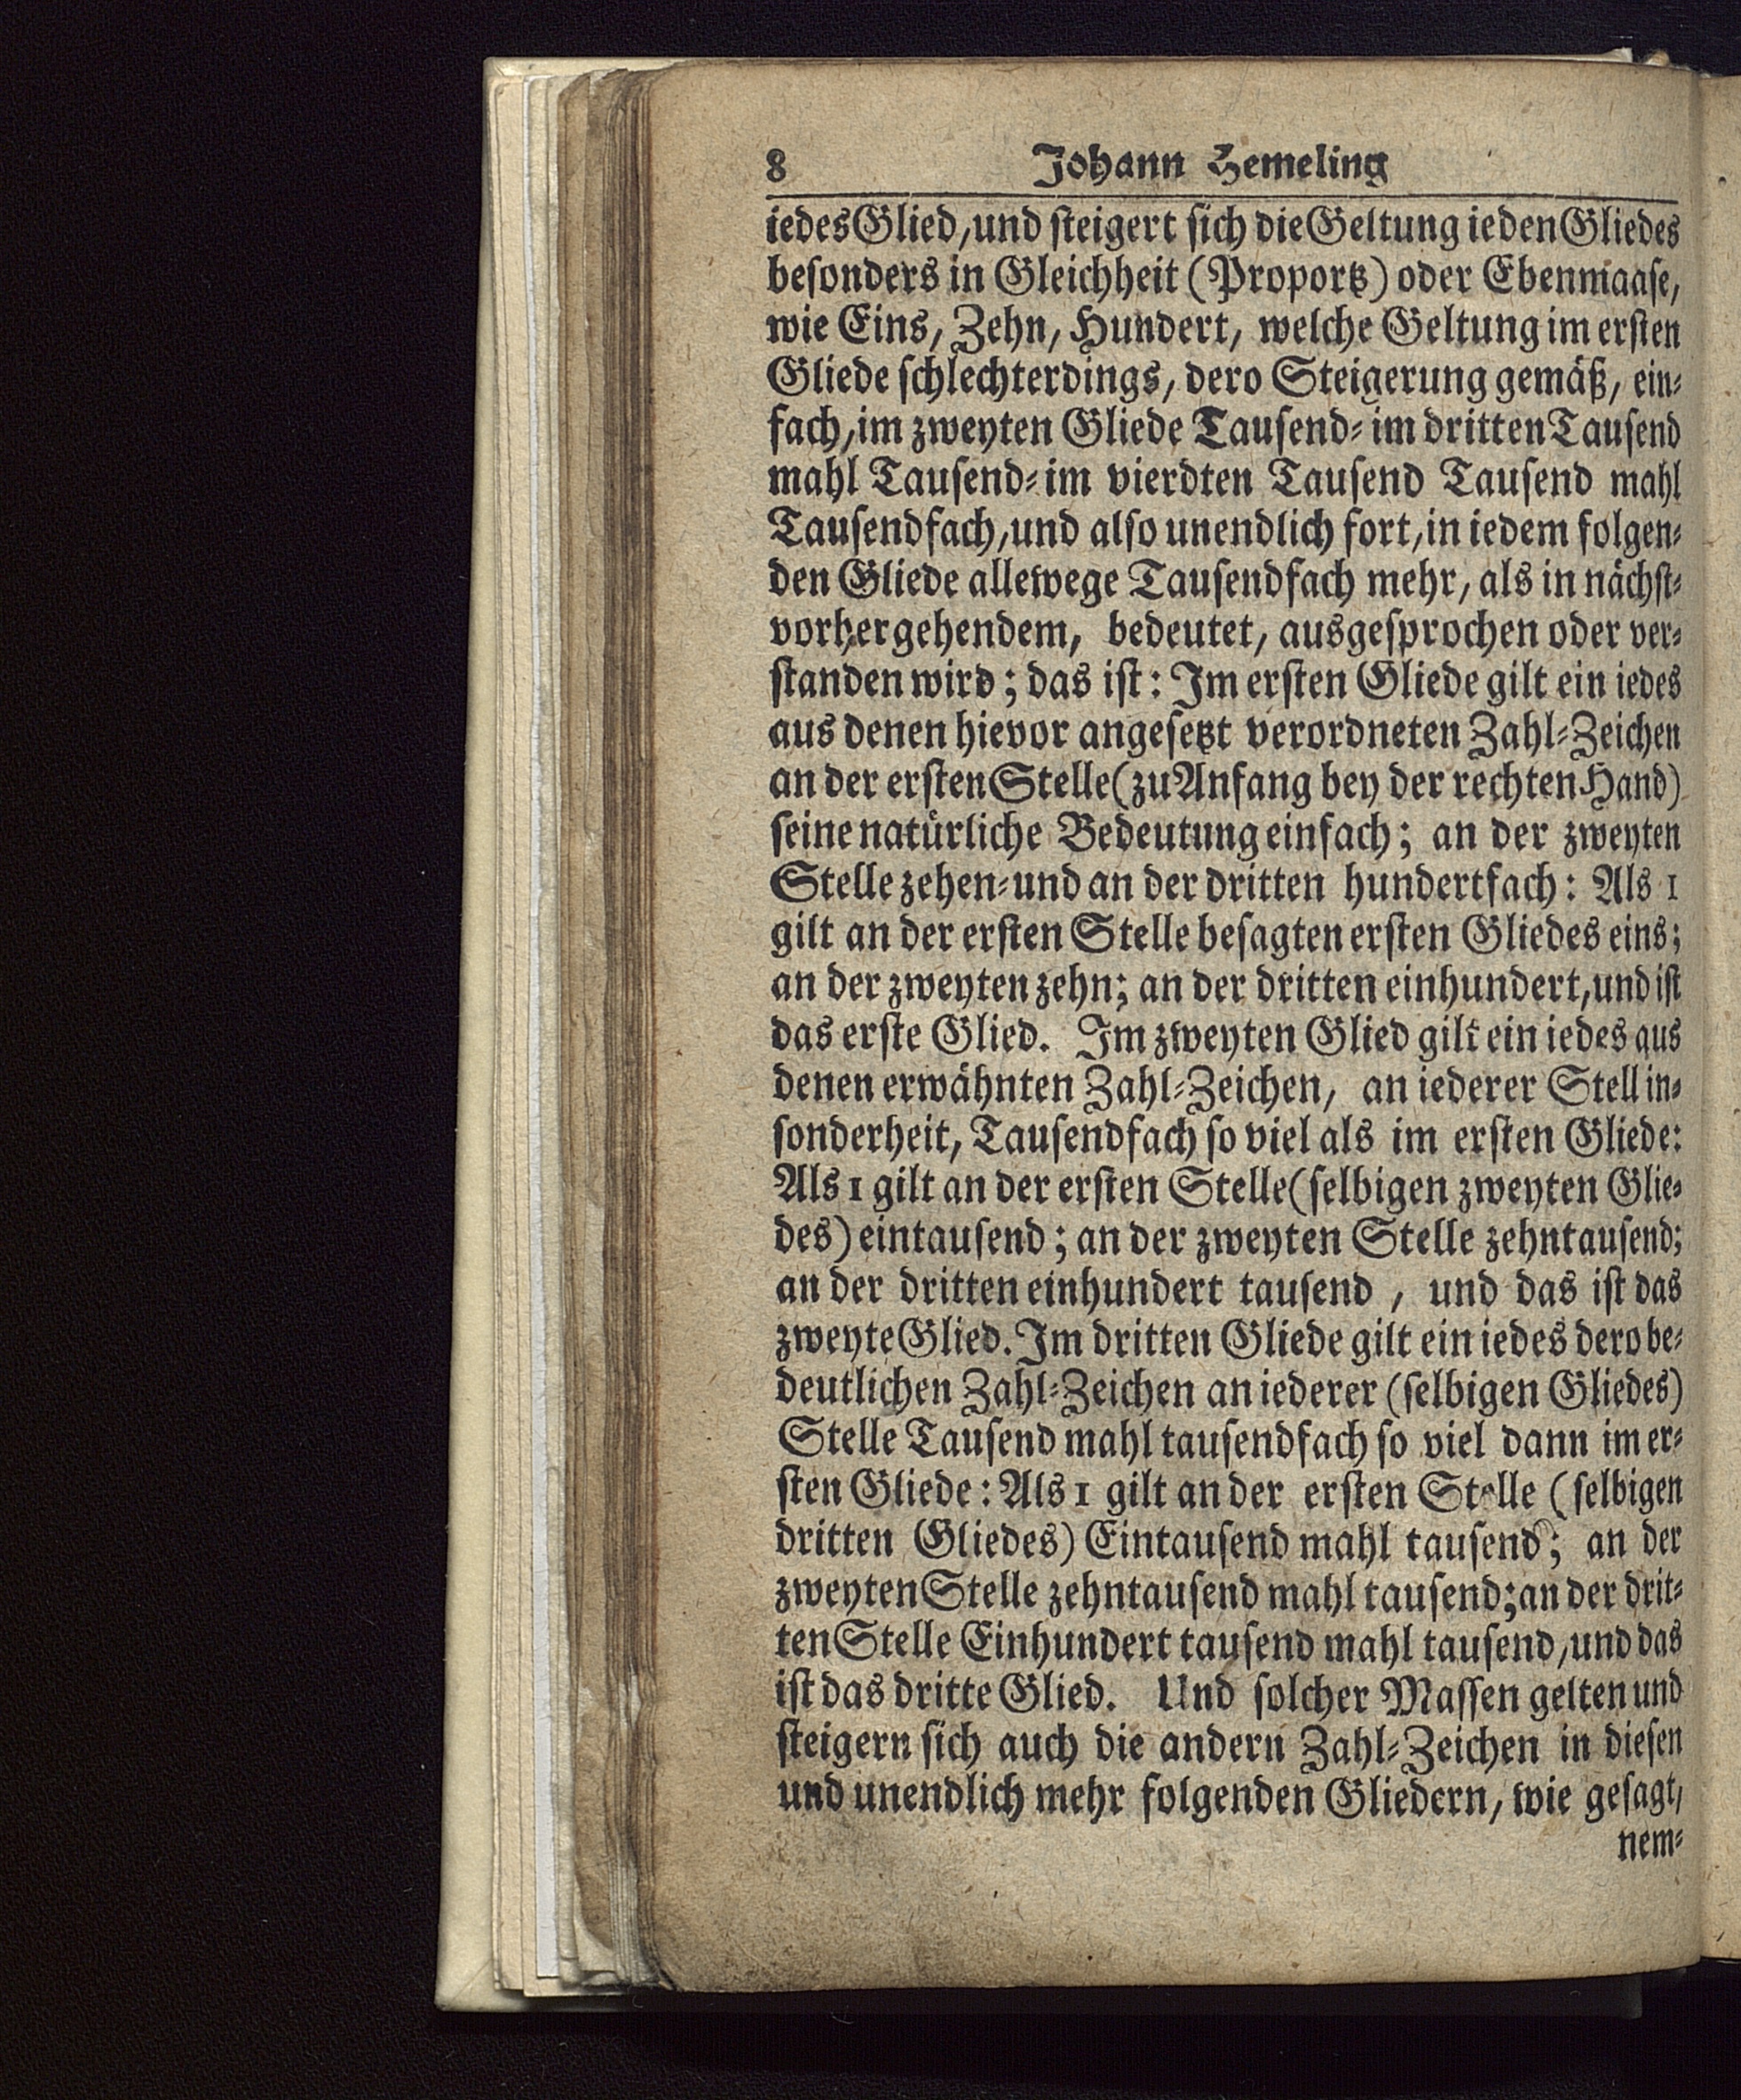 8 Johann Hemeling
iedes Glied, und steigert sich die Geltung ieden Gliedes
besonders in Gleichheit (Proportz) oder Ebenmaase,
wie Eins, Zehn, Hundert, welche Geltung im ersten
Gliede schlechterdings, dero Steigerung gemäß, ein-
fach, im zweyten Gliede Tausend- im dritten Tausend
mahl Tausend- im vierdten Tausend Tausend mahl
Tausendfach, und also unendlich fort, in iedem folgen-
den Gliede allewege Tausendfach mehr, als in nächst-
vorhergehendem, bedeutet, ausgesprochen oder ver-
standen wird; das ist: Im ersten Gliede gilt ein iedes
aus denen hievor angesetzt verordneten Zahl-Zeichen
an der ersten Stelle (zu Anfang bey der rechten Hand)
seine natürliche Bedeutung einfach; an der zweyten
Stelle zehen- und an der dritten hundertfach: Als 1
gilt an der ersten Stelle besagten ersten Gliedes eins;
an der zweyten zehn; an der dritten einhundert, und ist
das erste Glied. Im zweyten Glied gilt ein iedes aus
denen erwähnten Zahl-Zeichen, an iederer Stell in-
sonderheit, Tausendfach so viel als im ersten Gliede:
Als 1 gilt an der ersten Stelle (selbigen zweyten Glie-
des) eintausend; an der zweyten Stelle zehntausend;
an der dritten einhundert tausend, und das ist das
zweyte Glied. Im dritten Gliede gilt ein iedes dero be-
deutlichen Zahl-Zeichen an iederer (selbigen Gliedes)
Stelle Tausend mahl tausendfach so viel dann im er-
sten Gliede: Als 1 gilt an der ersten Stelle (selbigen
dritten Gliedes) Eintausend mahl tausend; an der
zweyten Stelle zehntausend mahl tausend; an der drit-
ten Stelle Einhundert tausend mahl tausend, und das
ist das dritte Glied. Und solcher Massen gelten und
steigern sich auch die andern Zahl-Zeichen in diesen
und unendlich mehr folgenden Gliedern, wie gesagt,
nem-